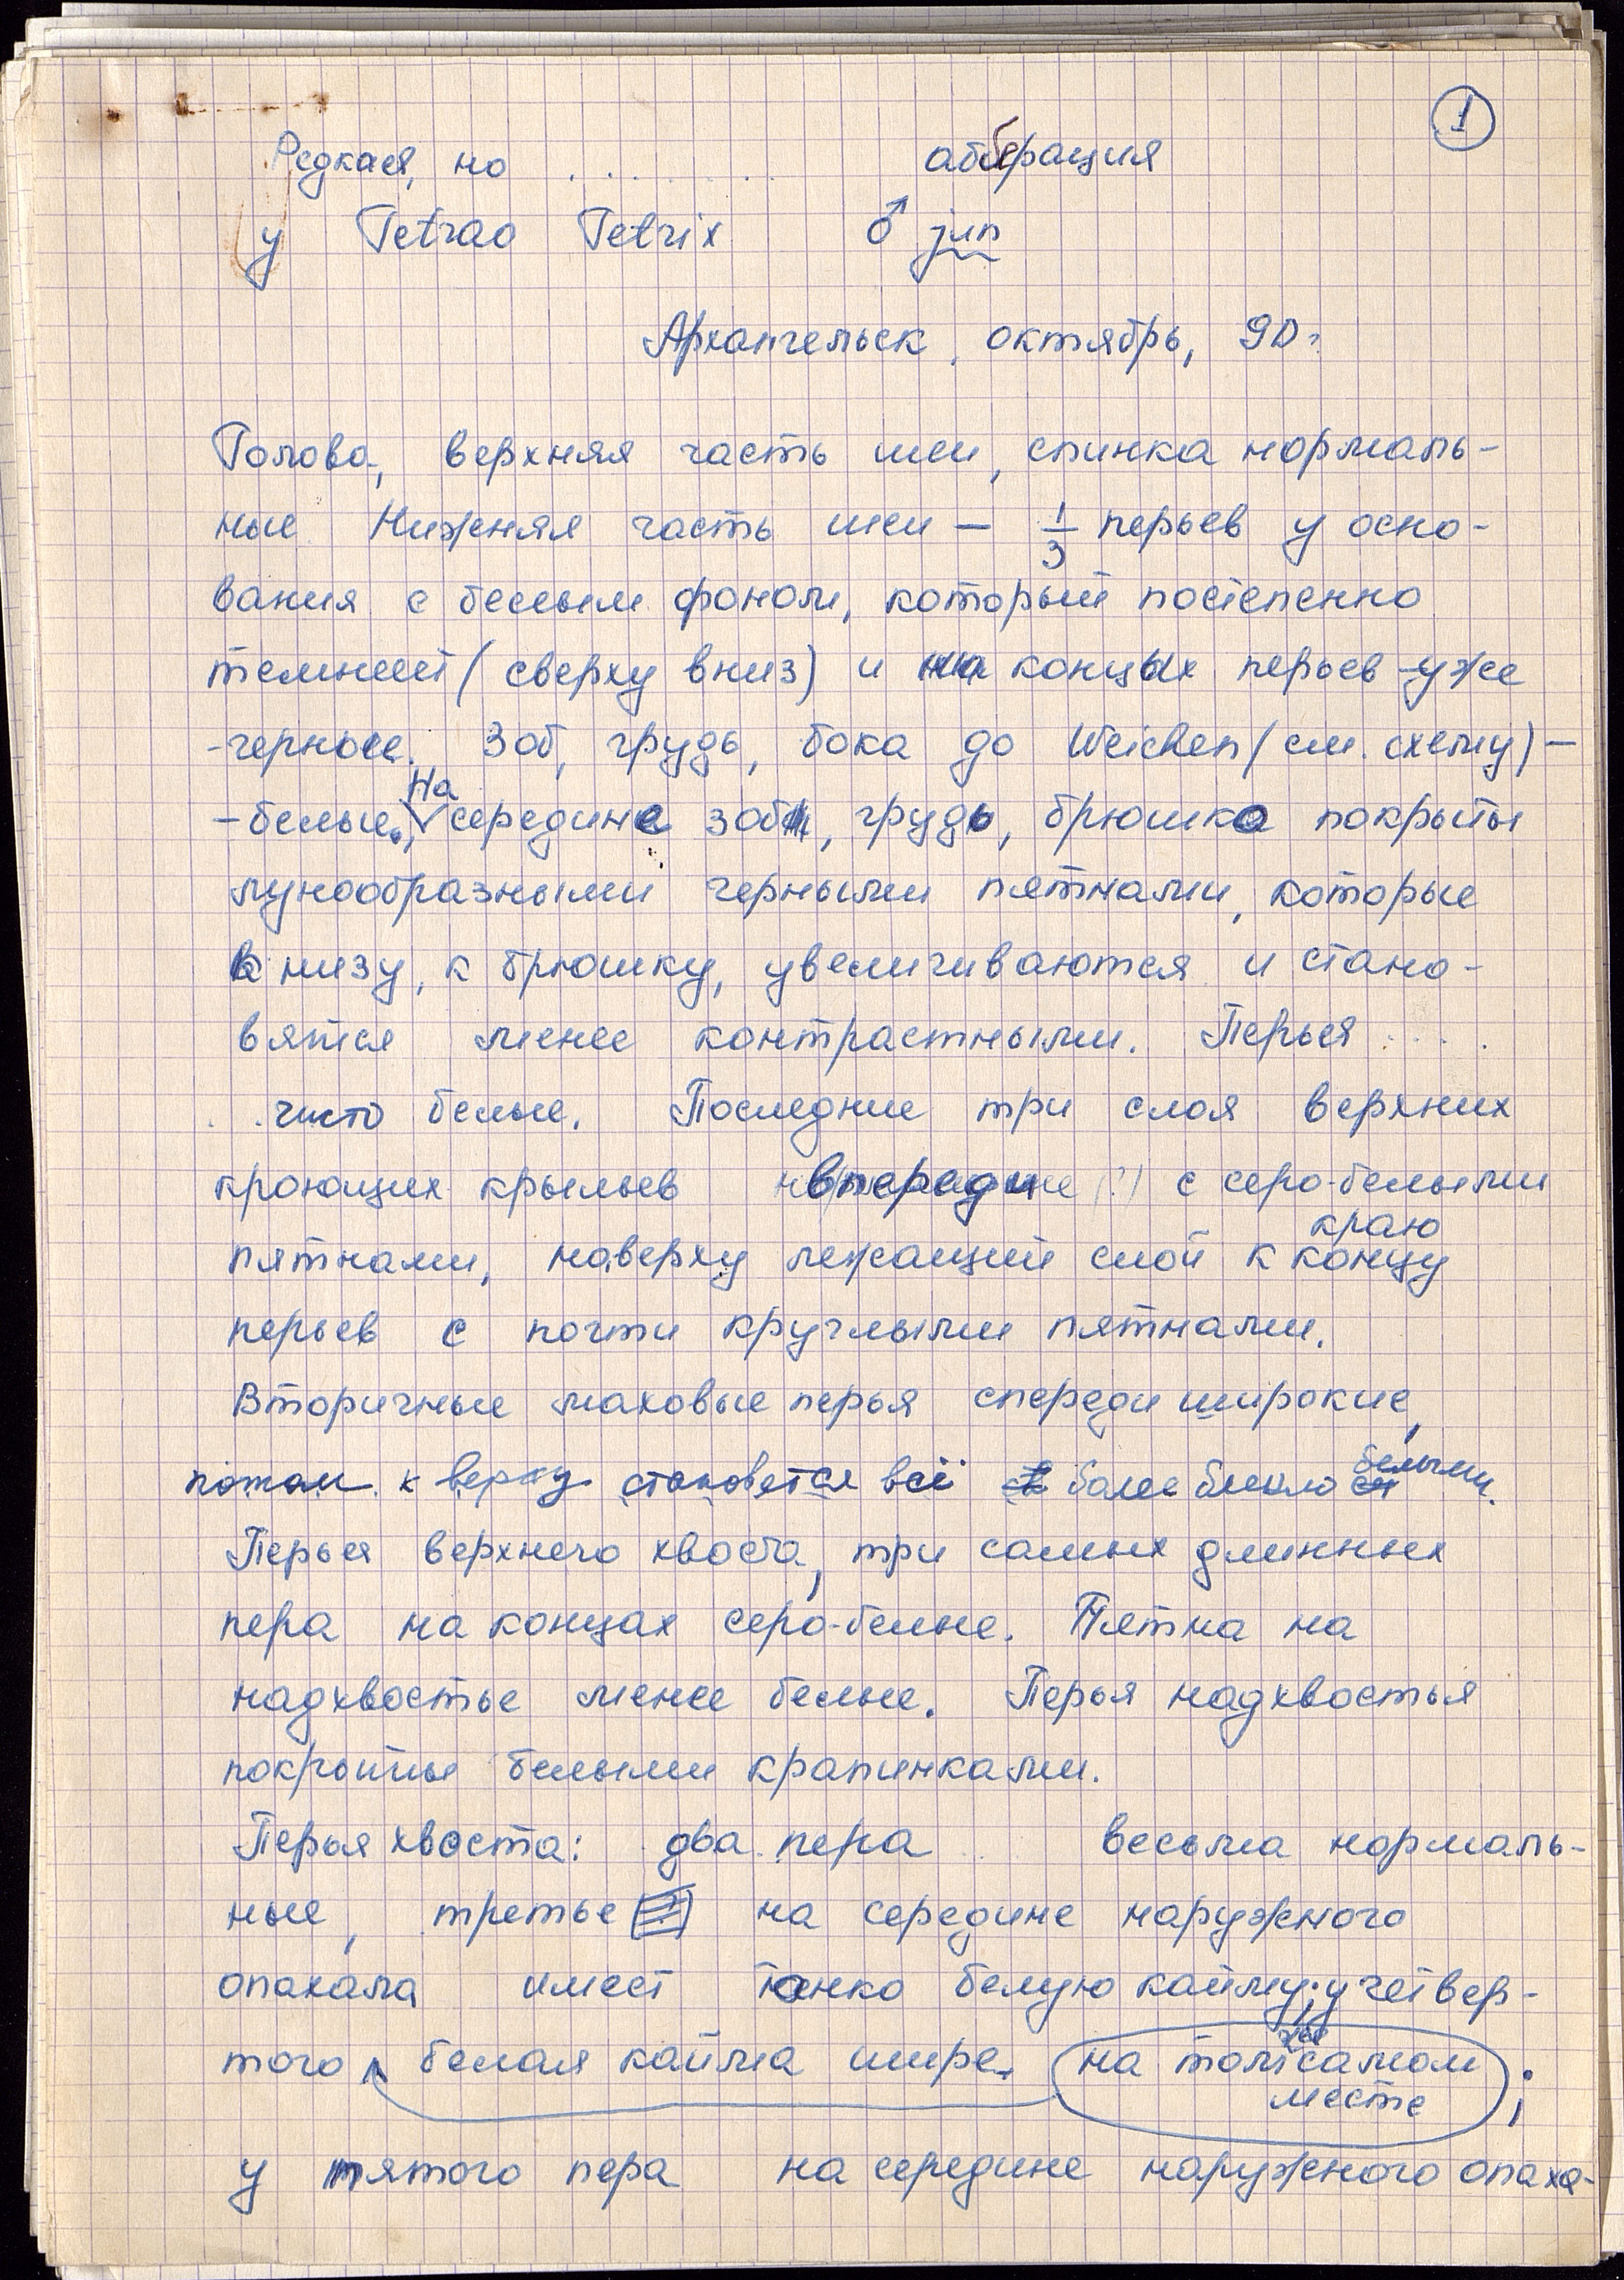 1
Редкая, но . . . . . . . . аберрация
у Tetrao Tetrix ♂ jun
Архангельск, октябрь, 90г
Голова, верхняя часть шеи, спинка нормаль-
ные. Нижняя часть шеи — 1/3 перьев у осно-
вания с белым фоном, который постепенно
темнеет (сверху вниз) и на концах перьев - уже
- черное. Зоб, грудь, бока до Weichen (см. схему) —
- белые. На середине зоб, грудь, брюшко покрыты
лунообразными черными пятнами, которые
к низу, к брюшку, увеличиваются и стано-
вятся менее контрастными. Перья . . . .
. . чисто белые. Последние три слоя верхних
кроющих крыльев впереди (?) с серо-белыми
краю
пятнами, наверху лежащий слой к концу
перьев с почти круглыми пятнами.
Вторичные маховые перья спереди широкие,
потом к верху становятся всё более блекло белыми.
Перья верхнего хвоста, три самых длинных
пера на концах серо-белые. Пятна на
надхвостье менее белые. Перья надхвостья
покрыты белыми крапинками.
Перья хвоста: два пера весьма нормаль-
ные, третье на середине наружного
опахала имеет тонко белую кайму; у четвер-
того белая кайма шире на том же самом
месте ;
у пятого пера на середине наружного опаха-